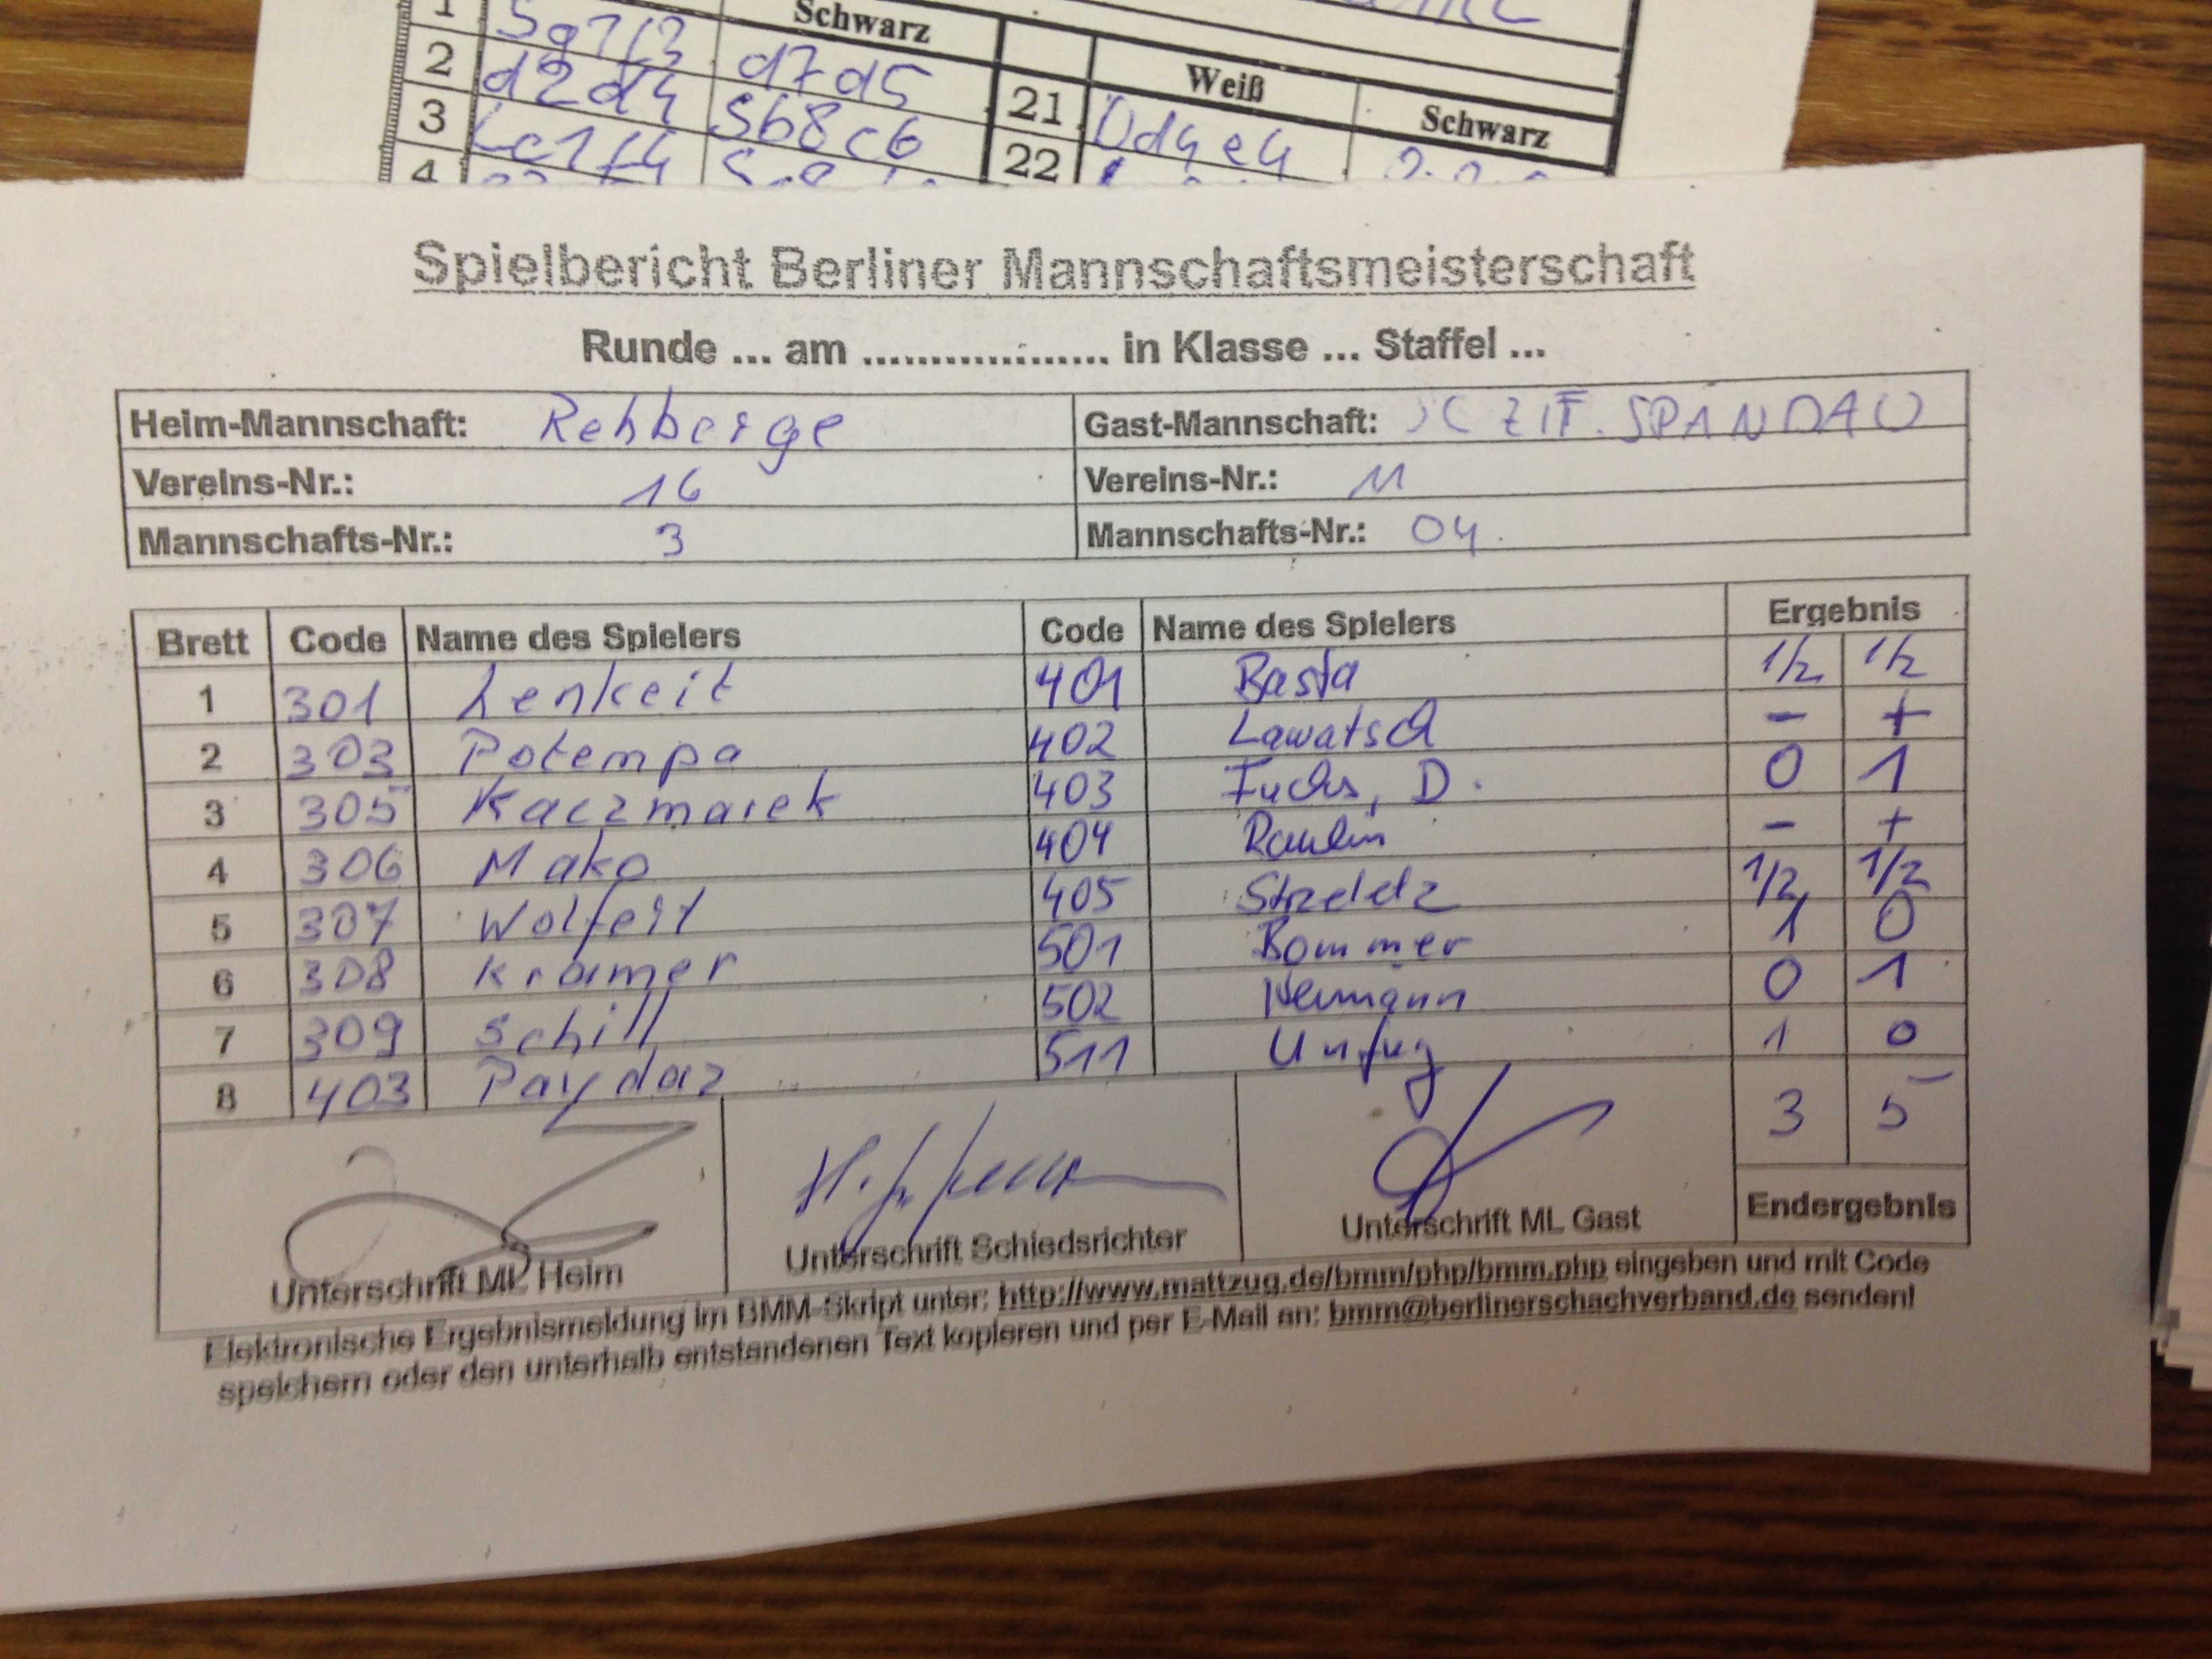 1 Sg1f3 Schwarz
2 d2d4 d7d5 Weiß Schwarz
3 Lc1f4 Sb8c6 21 Dd4e4
4 22
Spielbericht Berliner Mannschaftsmeisterschaft
Runde ... am .................. in Klasse ... Staffel ...
Heim-Mannschaft: Rehberge Gast-Mannschaft: SC ZIT. SPANDAU
Vereins-Nr.: 16 Vereins-Nr.: 11
Mannschafts-Nr.: 3 Mannschafts-Nr.: 04.
Brett Code Name des Spielers Code Name des Spielers Ergebnis
1 301 Lenkeit 401 Basta 1/2 1/2
2 303 Potempa 402 Lawatsch - +
3 305 Kaczmarek 403 Fuchs, D. 0 1
4 306 Mako 404 Raulin - +
5 307 Wolfeil 405 1/2 1/2
6 308 Kramer 501 Bommer 1 0
7 309 Schill 502 0 1
8 403 Paydaz 511 Unfug 1 0
3 5
Unterschrift ML Heim Unterschrift Schiedsrichter Unterschrift ML Gast Endergebnis
Elektronische Ergebnismeldung im BMM-Skript unter: http://www.mattzug.de/bmm/php/bmm.php eingeben und mit Code
speichern oder den unterhalb entstandenen Text kopieren und per E-Mail an: bmm@berlinerschachverband.de senden!